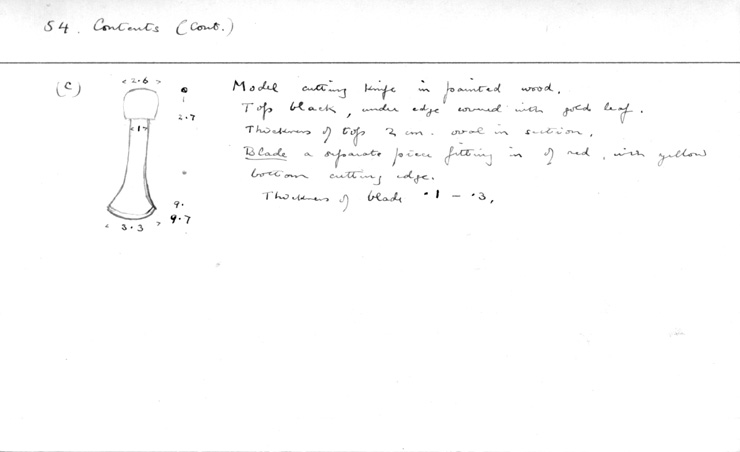 54. Contents (Cont.)
(c)
< 2.6 >
0
2.7
< 1 >
9.
9.7
< 3.3 >
Model cutting knife in painted wood.
Top black, under edge covered with gold leaf.
Thickness of top 2 cm. oval in section.
Blade a separate piece fitting in of red, with yellow
bottom cutting edge.
Thickness of blade .1 – .3,